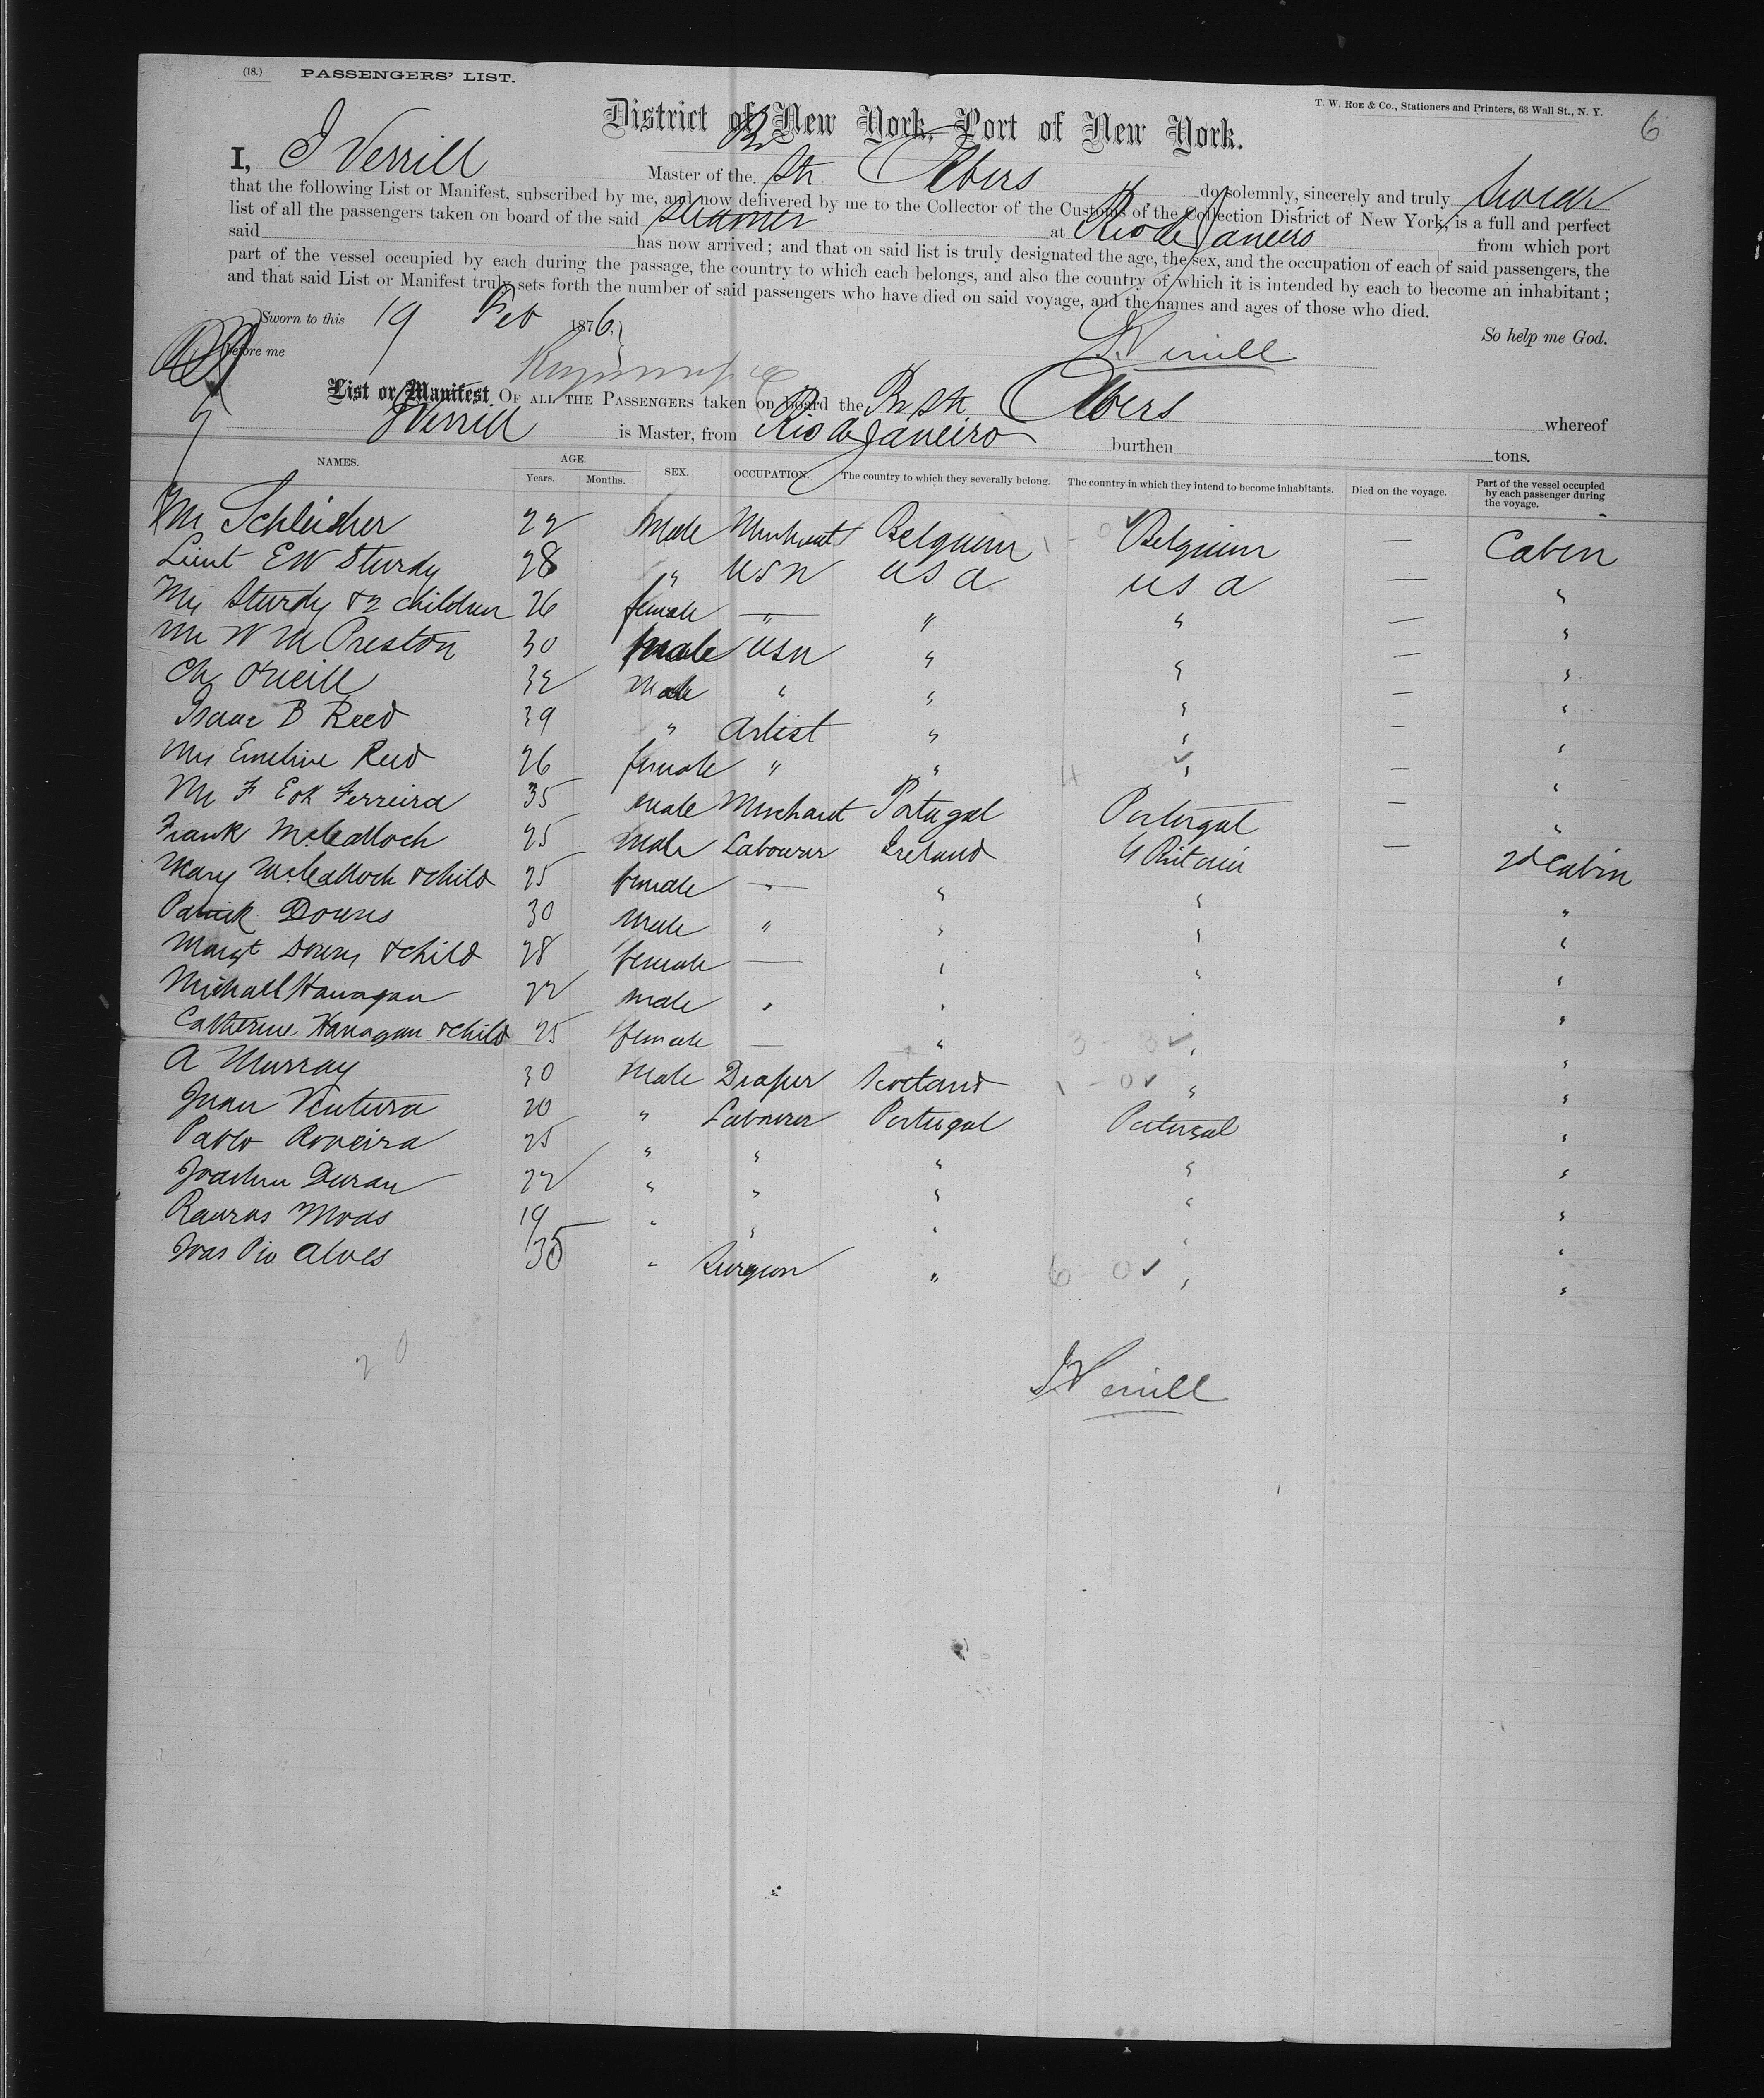 (18.) PASSENGERS' LIST.
T. W. ROE & CO., Stationers and Printers, 63 Wall St., N. Y.
6
District of New York, Port of New York.
I, J Verrill Master of the Br Str Olbers do solemnly, sincerely and truly swear
that the following List or Manifest, subscribed by me, and now delivered by me to the Collector of the Customs of the Collection District of New York, is a full and perfect
list of all the passengers taken on board of the said Steamer at Rio de Janeiro from which port
said has now arrived; and that on said list is truly designated the age, the sex, and the occupation of each of said passengers, the
part of the vessel occupied by each during the passage, the country to which each belongs, and also the country of which it is intended by each to become an inhabitant;
and that said List or Manifest truly sets forth the number of said passengers who have died on said voyage, and the names and ages of those who died.
So help me God.
Sworn to this 19 Feb 1876,
before me
J Verrill
List or Manifest. OF ALL THE PASSENGERS taken on board the Br Str Olbers whereof
J Verrill is Master, from Rio de Janeiro burthen tons.
NAMES. AGE. Years. Months. SEX. OCCUPATION. The country to which they severally belong. The country in which they intend to become inhabitants. Died on the voyage. Part of the vessel occupied by each passenger during the voyage.
Mr Schleisher 22 Male Merchant Belguim 1 - 0 ✓ Belguim — Cabin
Lieut EW Sturdy 28 " USN USA USA — "
Mrs Sturdy & 2 children 26 female — " " " — "
Mr W M Preston 30 male USN " " — "
Ch O'Neill 32 Male " " " — "
Isaac B Reed 39 " Artist " " — "
Mrs Emeline Reed 26 female " " 4 2 ✓ " — "
Mr F Ferreira 35 male Merchant Portugal Portugal — "
Frank McCalloch 25 Male Labourer Ireland G Britain — 2d Cabin
Mary McCalloch & child 25 female — " " " "
Patrick Downs 30 Male " " " "
Margt Downs & child 28 female — " " "
Michael Hanagan 22 male " " " "
Catherine Hanagan & child 25 female — " 3 - 3 ✓ " "
A Murray 30 Male Draper Scotland 1 - 0 ✓ " "
Juan Ventura 20 " Labourer Portugal Portugal "
Pablo Roveira 25 " " " " "
Joachim Duran 22 " " " " "
Mods 19 " " " " "
Joas Pio Alves 35 " Surgeon " 6 - 0 ✓ " "
20
J Verrill